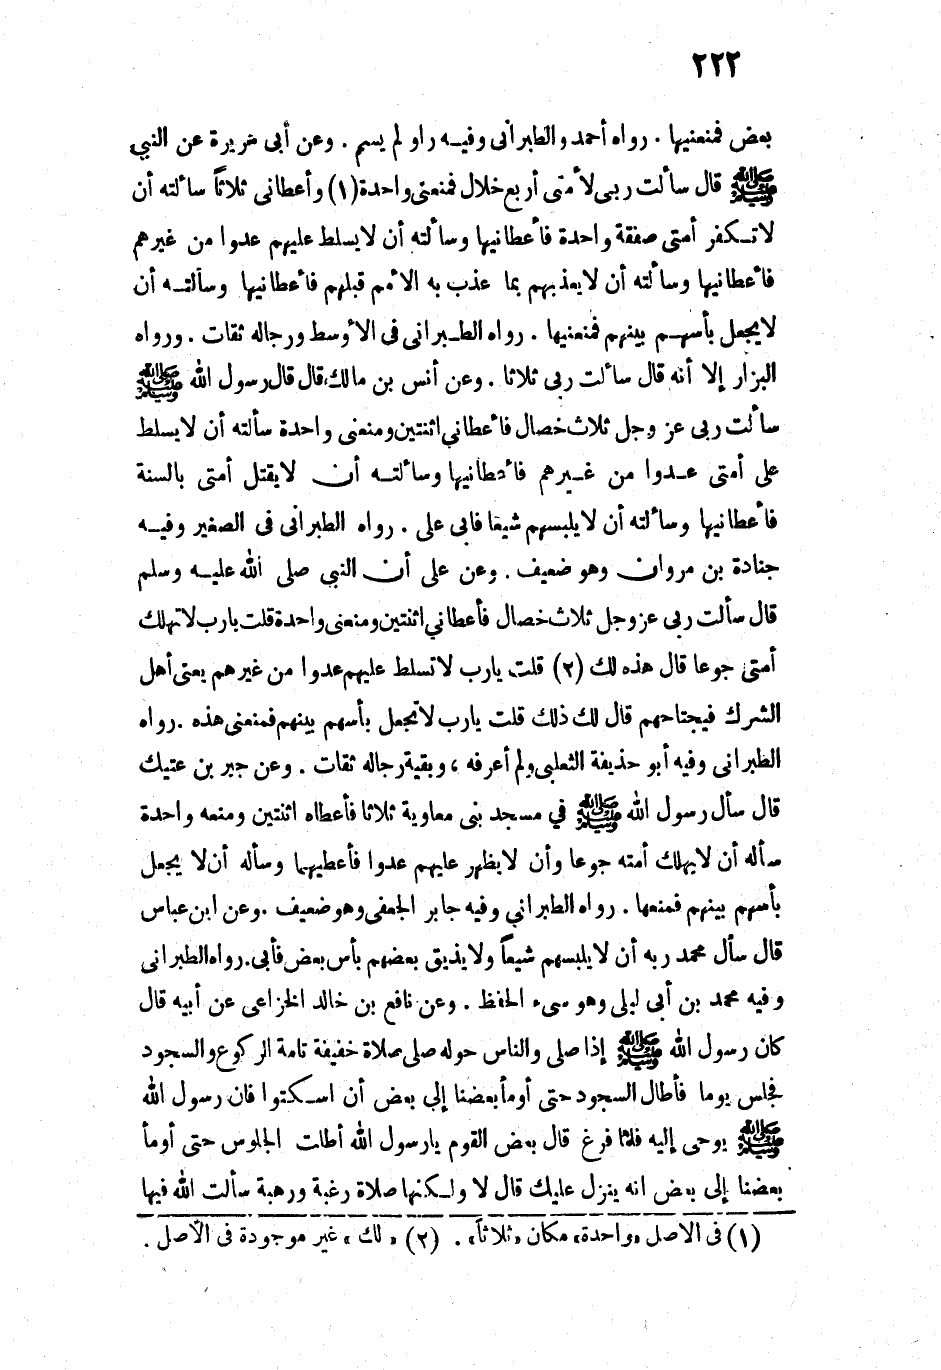 ٢٢٢
بعض فمنعنيها . رواه أحمد والطبرانى وفيـه راو لم يسم . وعن أبى هريرة عن النبي
ﷺ قال سألت ربى لأمتى أربع خلال فمنعنى واحدة (١) وأعطانى ثلاثاً سألته أن
لا تـكفر أمتى صفقة واحدة فأعطانيها وسألته أن لا يسلط عليهم عدوا من غيرهم
فأعطانيها وسألته أن لا يعذبهم بما عذب به الأمم قبلهم فأعطانيها وسألتـه أن
لا يجعل بأسهـم بينهم فمنعنيها . رواه الطـبرانى فى الأوسط ورجاله ثقات . ورواه
البزار إلا أنه قال سألت ربى ثلاثا . وعن أنس بن مالك قال قال رسول الله ﷺ
سألت ربى عز وجل ثلاث خصال فأعطاني اثنتين ومنعنى واحدة سألته أن لا يسلط
على أمتى عـدوا من غـيرهم فأعطانيها وسألتـه أن لا يقتل أمتى بالسنة
فأعطانيها وسألته أن لا يلبسهم شيعا فابى على . رواه الطبرانى فى الصغير وفيـه
جنادة بن مروان وهو ضعيف . وعن على أن النبي صلى الله عليـه وسلم
قال سألت ربى عز وجل ثلاث خصال فأعطاني اثنتين ومنعنى واحدة قلت يارب لا تهلك
أمتى جوعا قال هذه لك (٢) قلت يارب لا تسلط عليهم عدوا من غيرهم يعنى أهل
الشرك فيجتاحهم قال لك ذلك قلت يارب لا تجعل بأسهم بينهم فمنعنى هذه . رواه
الطبرانى وفيه أبو حذيفة الثعلبى ولم أعرفه ، وبقية رجاله ثقات . وعن جبر بن عتيك
قال سأل رسول الله ﷺ في مسجد بنى معاوية ثلاثا فأعطاه اثنتين ومنعه واحدة
سأله أن لا يهلك أمته جوعا وأن لا يظهر عليهم عدوا فأعطيهما وسأله أن لا يجعل
بأسهم بينهم فمنعها . رواه الطبراني وفيه جابر الجعفى وهو ضعيف . وعن ابن عباس
قال سأل محمد ربه أن لا يلبسهم شيعاً ولا يذيق بعضهم بأس بعض فأبى . رواه الطبرانى
وفيه محمد بن أبى ليلى وهو سىء الحفظ . وعن نافع بن خالد الخزاعى عن أبيه قال
كان رسول الله ﷺ إذا صلى والناس حوله صلى صلاة خفيفة تامة الركوع والسجود
فجلس يوما فأطال السجود حتى أومأ بعضنا إلى بعض أن اسـكتوا فان رسول الله
ﷺ يوحى إليه فلما فرغ قال بعض القوم يارسول الله أطلت الجلوس حتى أومأ
بعضنا إلى بعض انه ينزل عليك قال لا ولـكنها صلاة رغبة ورهبة سألت الله فيها
(١) فى الاصل «واحدة» مكان «ثلاثاً» . (٢) «لك» غير موجودة فى الأصل .